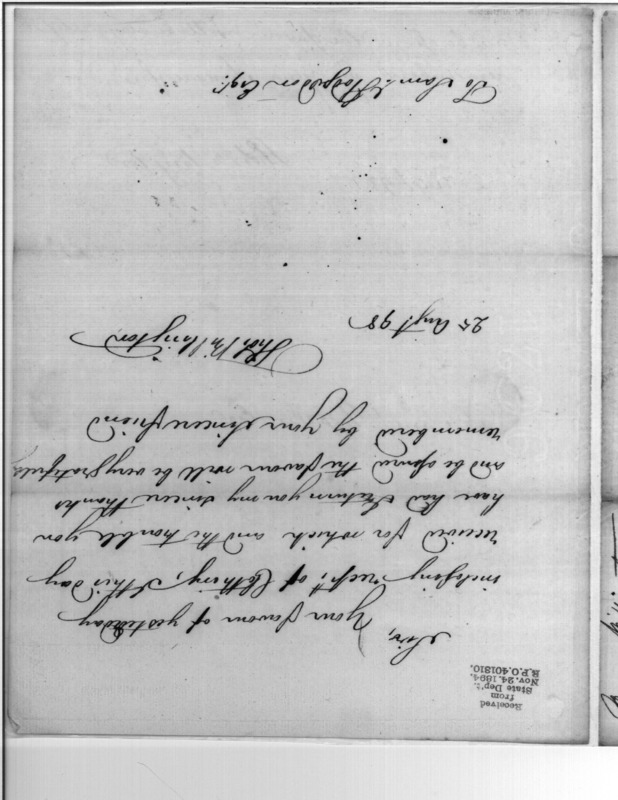 Received
from
State Dep't.
Nov. 24. 1894.
R.P.O. 401810.
Sir,
Your favour of yesterday
inclosing rect. of Cloathing, I this day
received for which and the trouble you
have had I return you my sincere thanks
and be assured the favour will be very gratefully
remembered by your sincere friend
Thos. Billington
25 Augt. 98
To Saml. Hodgsdon Esqr.